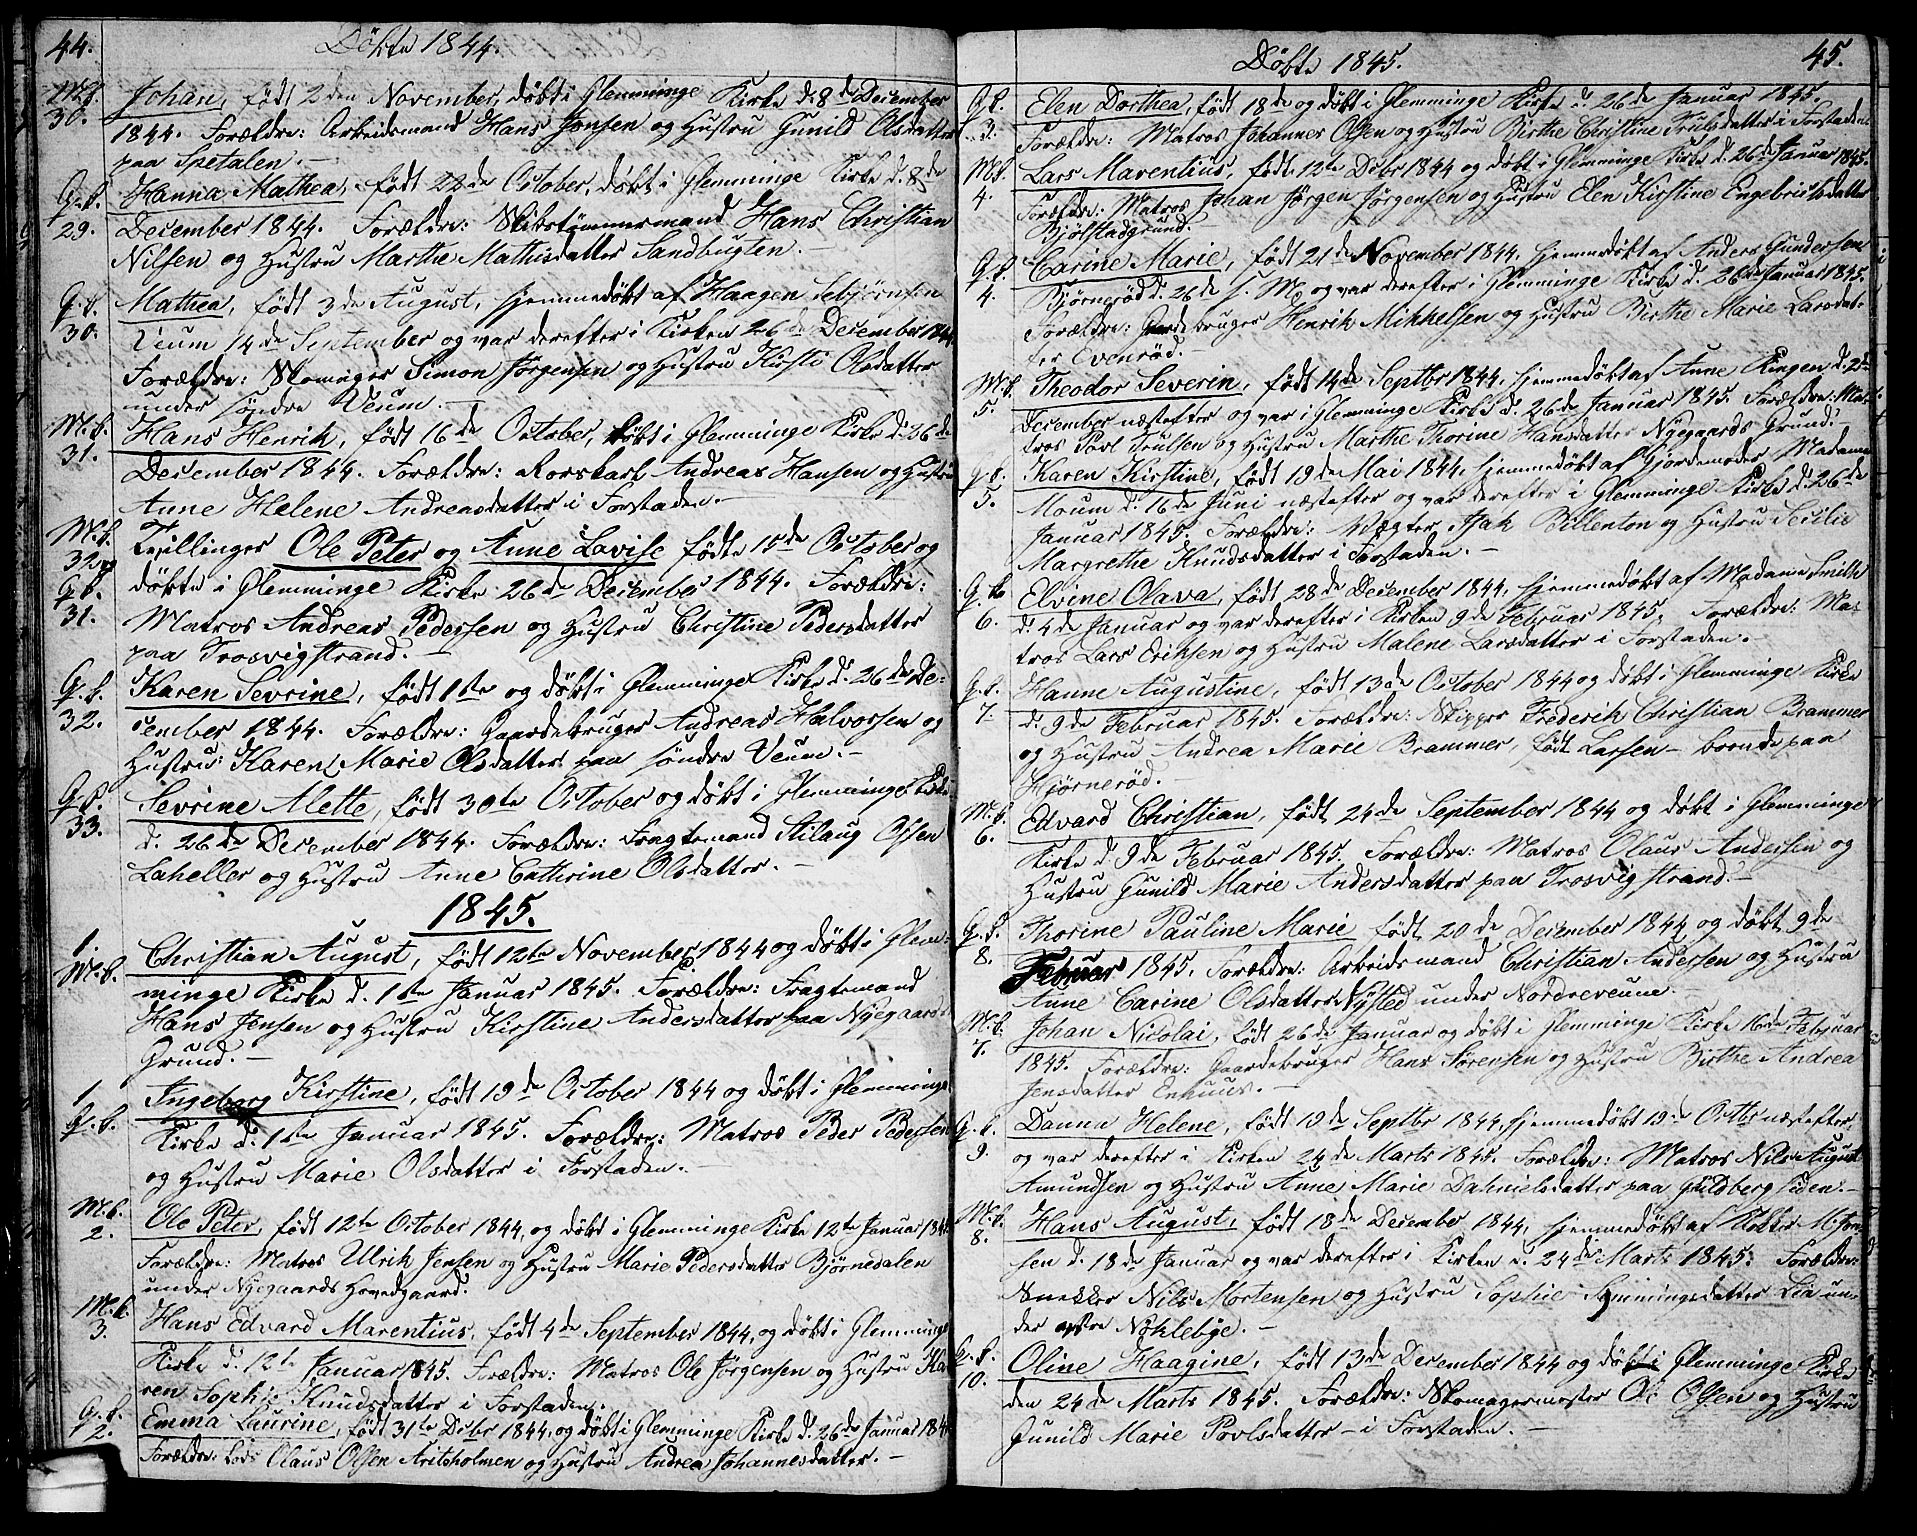 44.
Döbte 1844.
M.b. 30.
Johan, født 2den November, døbt i Glemminge Kirke d. 8de December
1844. Forældre: Arbeidsmand Hans Jonsen og Hustru Gunild Olsdatter
paa Spetalen.-
G.b. 29.
Hanna Mathea, født 22de October, døbt i Glemminge Kirke d. 8de
December 1844. Forældre: Skibstømmermand Hans Christian
Nilsen og Hustru Marthe Mathisdatter Sandbugten.-
G.b. 30.
Mathea, født 3de August, hjemmedøbt af Haagen Sebjørnsen
Veum 14de September og var derefter i Kirken 26de December 1844.
Forældre: Skomager Simon Jørgensen og Hustru Kirsti Olsdatter
under søndre Veum.-
M.b. 31.
Hans Henrik, født 16de October, døbt i Glemminge Kirke d. 26de
December 1844. Forældre: Rorskarl Andreas Hansen og Hustru
Anne Helene Andreasdatter i Forstaden.-
M.b. 32 og G.b. 31.
Tvillinger Ole Peter og Anne Lovise fødte 15de October og
døbte i Glemminge Kirke 26de December 1844. Forældre:
Matros Andreas Pedersen og Hustru Christine Pedersdatter
paa Trosvigstrand.-
G.b. 32.
Karen Sevrine, født 1ste og døbt i Glemminge Kirke d. 26de De-
cember 1844. Forældre: Gaardbruger Andreas Halvorsen og
Hustru: Karen Marie Olsdatter paa søndre Veum.-
G.b. 33.
Sevrine Alette, født 30te October og døbt i Glemminge Kirke
d. 26de December 1844. Forældre: Fragtemand Stilaug Olsen
Laheller og Hustru Anne Cathrine Olsdatter.-
1845.
1. M.b.
Christian August, født 12te November 1844 og døbt i Glem-
minge Kirke d. 1ste Januar 1845. Forældre: Fragtemand
Hans Jensen og Hustru Kirstine Andersdatter paa Nyegaards
Grund.-
1. G.b.
Ingeborg Kirstine, født 19de October 1844 og døbt i Glemminge
Kirke d. 1ste Januar 1845. Forældre: Matros Peder Pedersen
og Hustru Marie Olsdatter i Forstaden.-
M.b. 2.
Ole Peter, født 12te October 1844, og døbt i Glemminge Kirke 12te Januar 1845.
Forældre: Matros Ulrik Jensen og Hustru Marie Pedersdatter Bjørnedalen
under Nyegaards Hovedgaard.
M.b. 3.
Hans Edvard Marentius, født 4de September 1844, og døbt i Glemminge
Kirke d. 12te Januar 1845. Forældre: Matros Ole Jørgensen og Hustru Ka-
ren Sophie Knudsdatter i Forstaden.-
G.b. 2.
Emma Laurine, født 31te Decbr 1844, og døbt i Glemminge Kirke d. 26de Januar 1845
Forældre: Lods Olaus Olsen Aritsholmen og Hustru Andrea Johannesdatter.-
Döbte 1845.
45.
G.b. 3.
Elen Dorthea, født 18de og døbt i Glemminge Kirke d. 26de Januar 1845.
Forældre: Matros Johannes Olsen og Hustru Birthe Christine Trulsdatter i Forstaden
M.b. 4.
Lars Marentius, født 12te Decbr 1844 og døbt i Glemminge Kirke d. 26de Januar 1845.
Forældre: Matros Johan Jørgen Jørgensen og Hustru Elen Kirstine Engebrictsdatter
Bjølstadgrund.-
G.b. 4.
Carine Marie, født 21de November 1844, hjemmedøbt af Anders Gundersen
Bjørnerød d. 26de s. M. og var derefter i Glemminge Kirke d. 26de Januar 1845.
Forældre: Gaardbruger Henrik Mikkelsen og Hustru Birthe Marie Larsdat-
ter Evenrød.-
M.b. 5.
Theodor Severin, født 14de Septbr 1844, hjemmedøbt af Anne Ringen d. 2de
December næstefter og var i Glemminge Kirke d. 26de Januar 1845. Forældre: Ma-
tros Povl Trulsen og Hustru Marthe Thorine Hansdatter Nyegaards Grund.
G.b. 5.
Karen Kirstine, født 19de Mai 1844, hjemmedøbt af Gjordemoder Madame
Moum d. 16de Juni næstefter og var derefter i Glemminge Kirke d. 26de
Januar 1845. Forældre: Vægter Isak Billenton og Hustru Secilie
Margrethe Knudsdatter i Forstaden.-
G.b. 6.
Elvine Olava, født 28de December 1844, hjemmedøbt af Madame Smith
d. 4de Januar og var derefter i Kirken 9de Februar 1845. Forældre: Ma-
tros Lars Eriksen og Hustru Malene Larsdatter i Forstaden.-
G.b. 7.
Hanne Augustine, født 13de October 1844 og døbt i Glemminge Kirke
d. 9de Februar 1845. Forældre: Skipper Frederik Christian Brammer
og Hustru Andrea Marie Brammer, født Larsen - boende paa
Kjørnerød.-
M.b. 6.
Edvard Christian, født 24de September 1844 og døbt i Glemminge
Kirke d. 9de Februar 1845. Forældre: Matros Olaus Andersen og
Hustru Gunild Marie Andersdatter paa Trosvigstrand.-
G.b. 8.
Thorine Pauline Marie født 20de December 1844 og døbt 9de
Februar 1845. Forældre: Arbeidsmand Christian Andersen og Hustru
Anne Carine Olsdatter Nysted under Nordreveum.-
M.b. 7.
Johan Nicolai, født 26de Januar og døbt i Glemminge Kirke 16de Februar
1845. Forældre: Gaardbruger Hans Sørensen og Hustru Birthe Andrea
Jensdatter Enhuus.-
G.b. 9.
Danna Helene, født 10de Septbr 1844, hjemmedøbt 19de Octbr næstefter,
og var derefter i Kirken 24de Marts 1845. Forældre: Matros Nils August
Amundsen og Hustru Anne Marie Dahnielsdatter paa Guldberg Siden.-
M.b. 8.
Hans August, født 18de December 1844, hjemmedøbt af Klokker M. Jon-
sen d. 18de Januar og var derefter i Kirken d. 24de Marts 1845. Forældre:
Snekker Nils Mortensen og Hustru Sophie Semmingsdatter Lia un-
der østre Nøklebye.-
G.b. 10.
Oline Haagine, født 13de December 1844 og døbt i Glemminge Kirke
den 24de Marts 1845. Forældre: Skomagermester Ole Olsen og Hustru
Gunild Marie Povlsdatter - i Forstaden.-